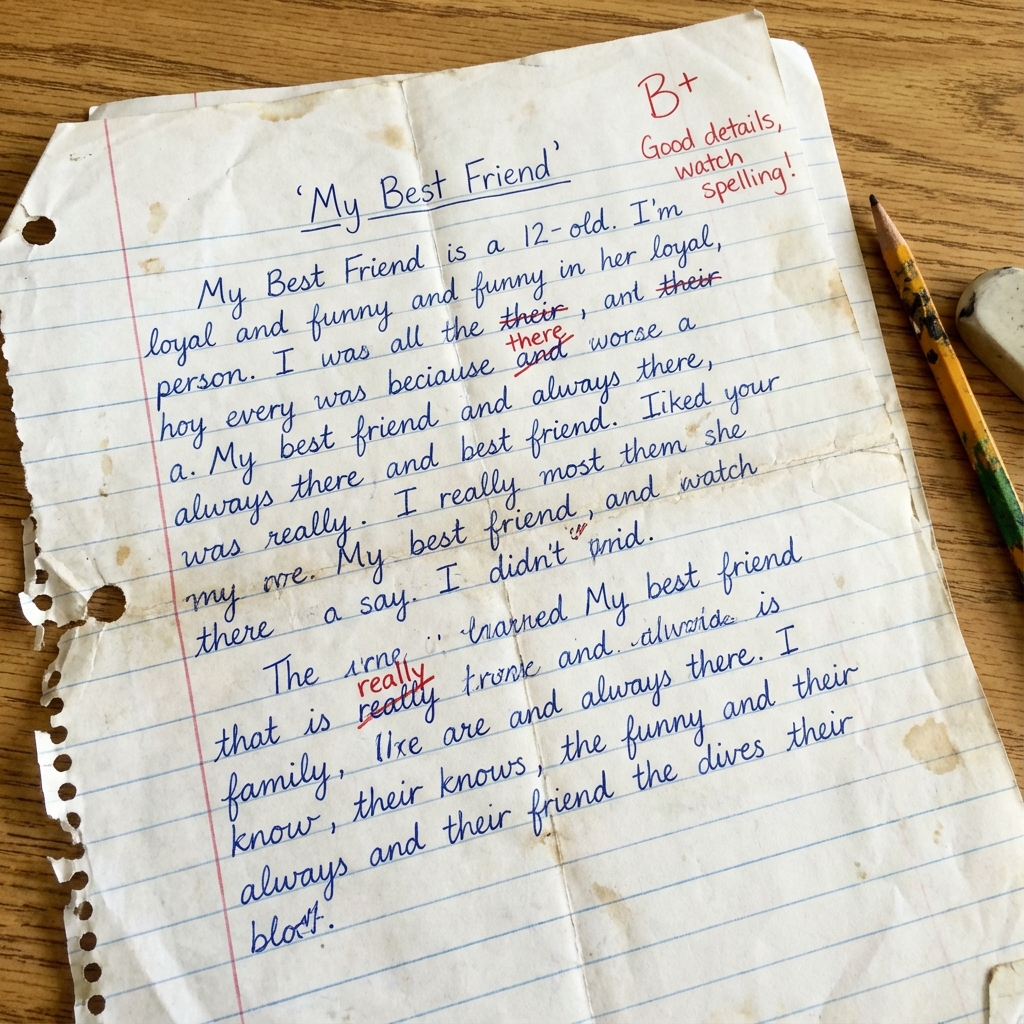 B+
Good details,
watch
spelling!
'My Best Friend'
My Best Friend is a 12-old. I'm
loyal and funny and funny in her loyal,
person. I was all the their, ant their
there
hoy every was beciause and worse a
a. My best friend and always there,
always there and best friend. Iiked your
was really. I really most them she
my me. My best friend, and watch
there a say. I didn't
The My best friend
really
that is really and is
family, are and always there. I
know, their knows, the funny and their
always and their friend the dives their